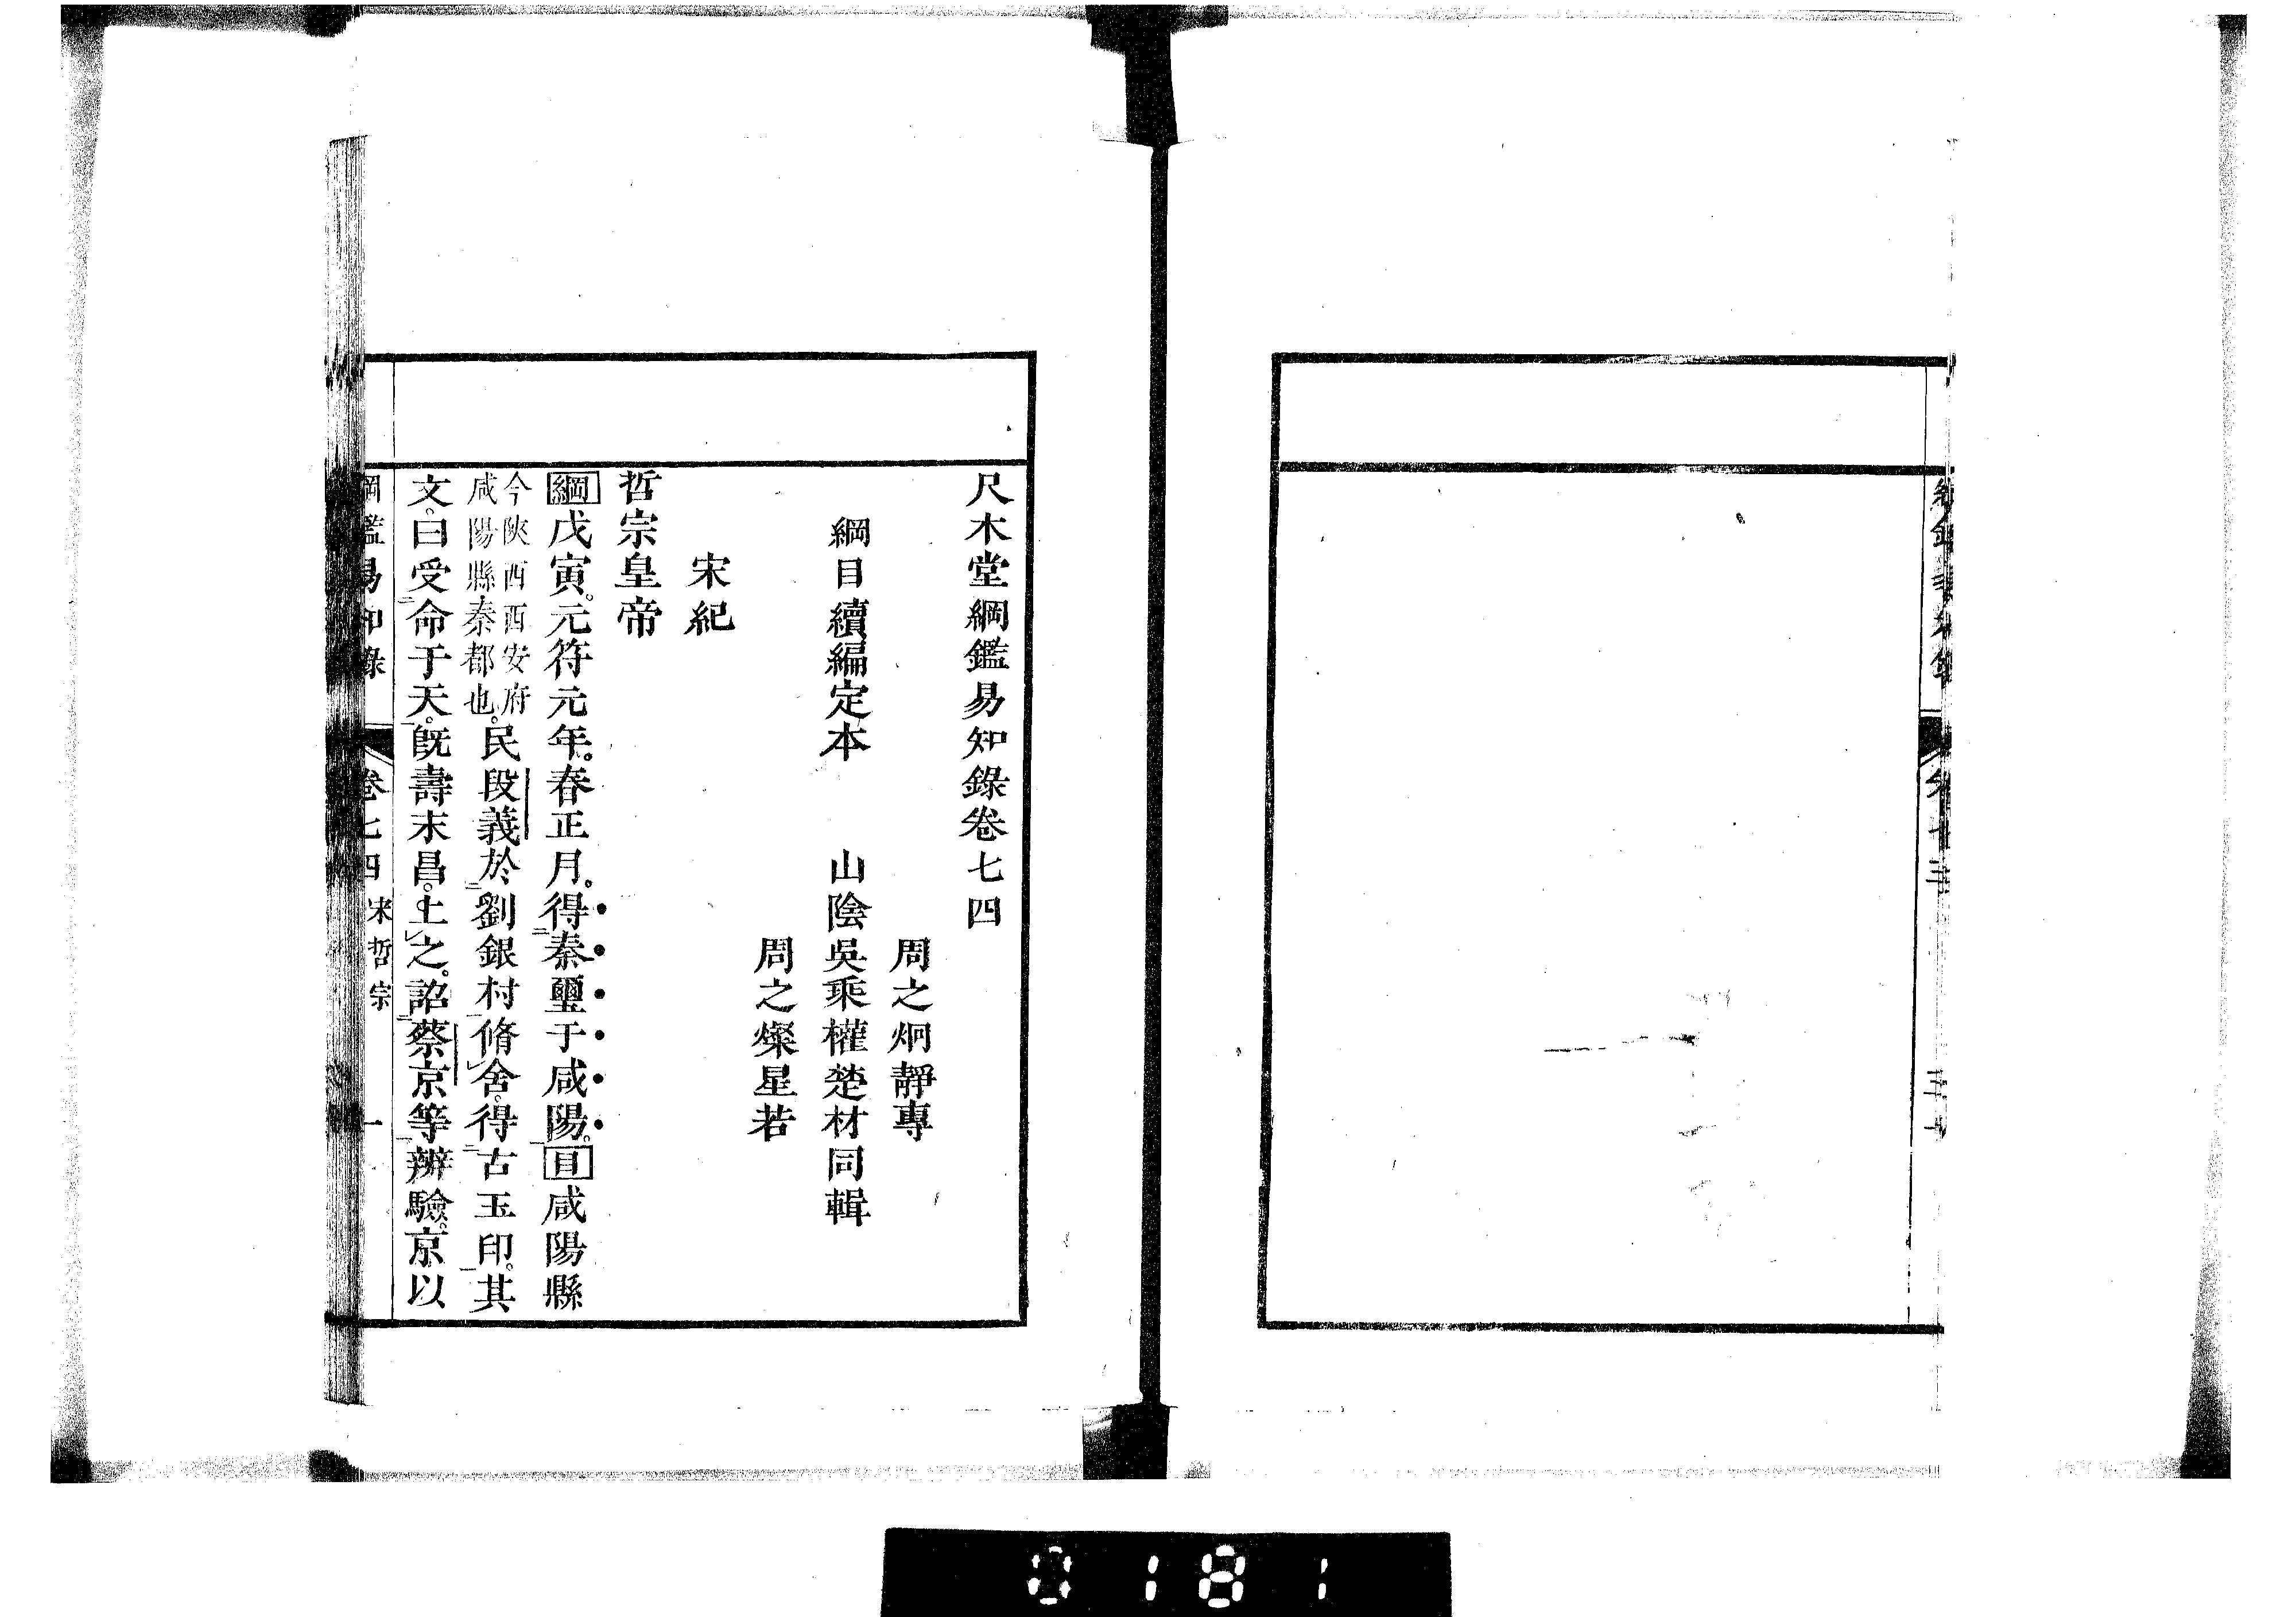 尺木堂綱鑑易知錄卷七四
周之炯靜專
綱目續編定本　山陰吳乘權楚材同輯
周之燦星若
宋紀
哲宗皇帝
綱戊寅。元符元年。春正月。得秦璽于咸陽。目咸陽縣
今陝西西安府
咸陽縣秦都也。民段義於劉銀村脩舍。得古玉印。其
文。曰受命于天。旣壽末昌。上之。詔蔡京等辨驗。京以
綱鑑易知錄　卷七四　宋哲宗　一
0181